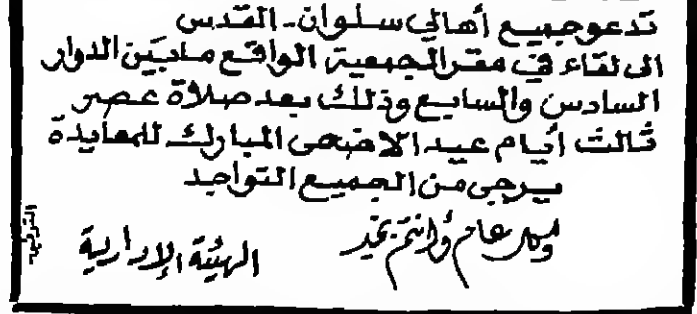 تدعو جميع أهالي سلوان - القدس
الى لقاء في مقر الجمعية الواقع مابين الدوار
السادس والسابع وذلك بعد صلاة عصر
ثالث أيام عيد الاضحى المبارك للمعايدة
يرجى من الجميع التواجد
وكل عام وأنتم بخير
الهيئة الإدارية